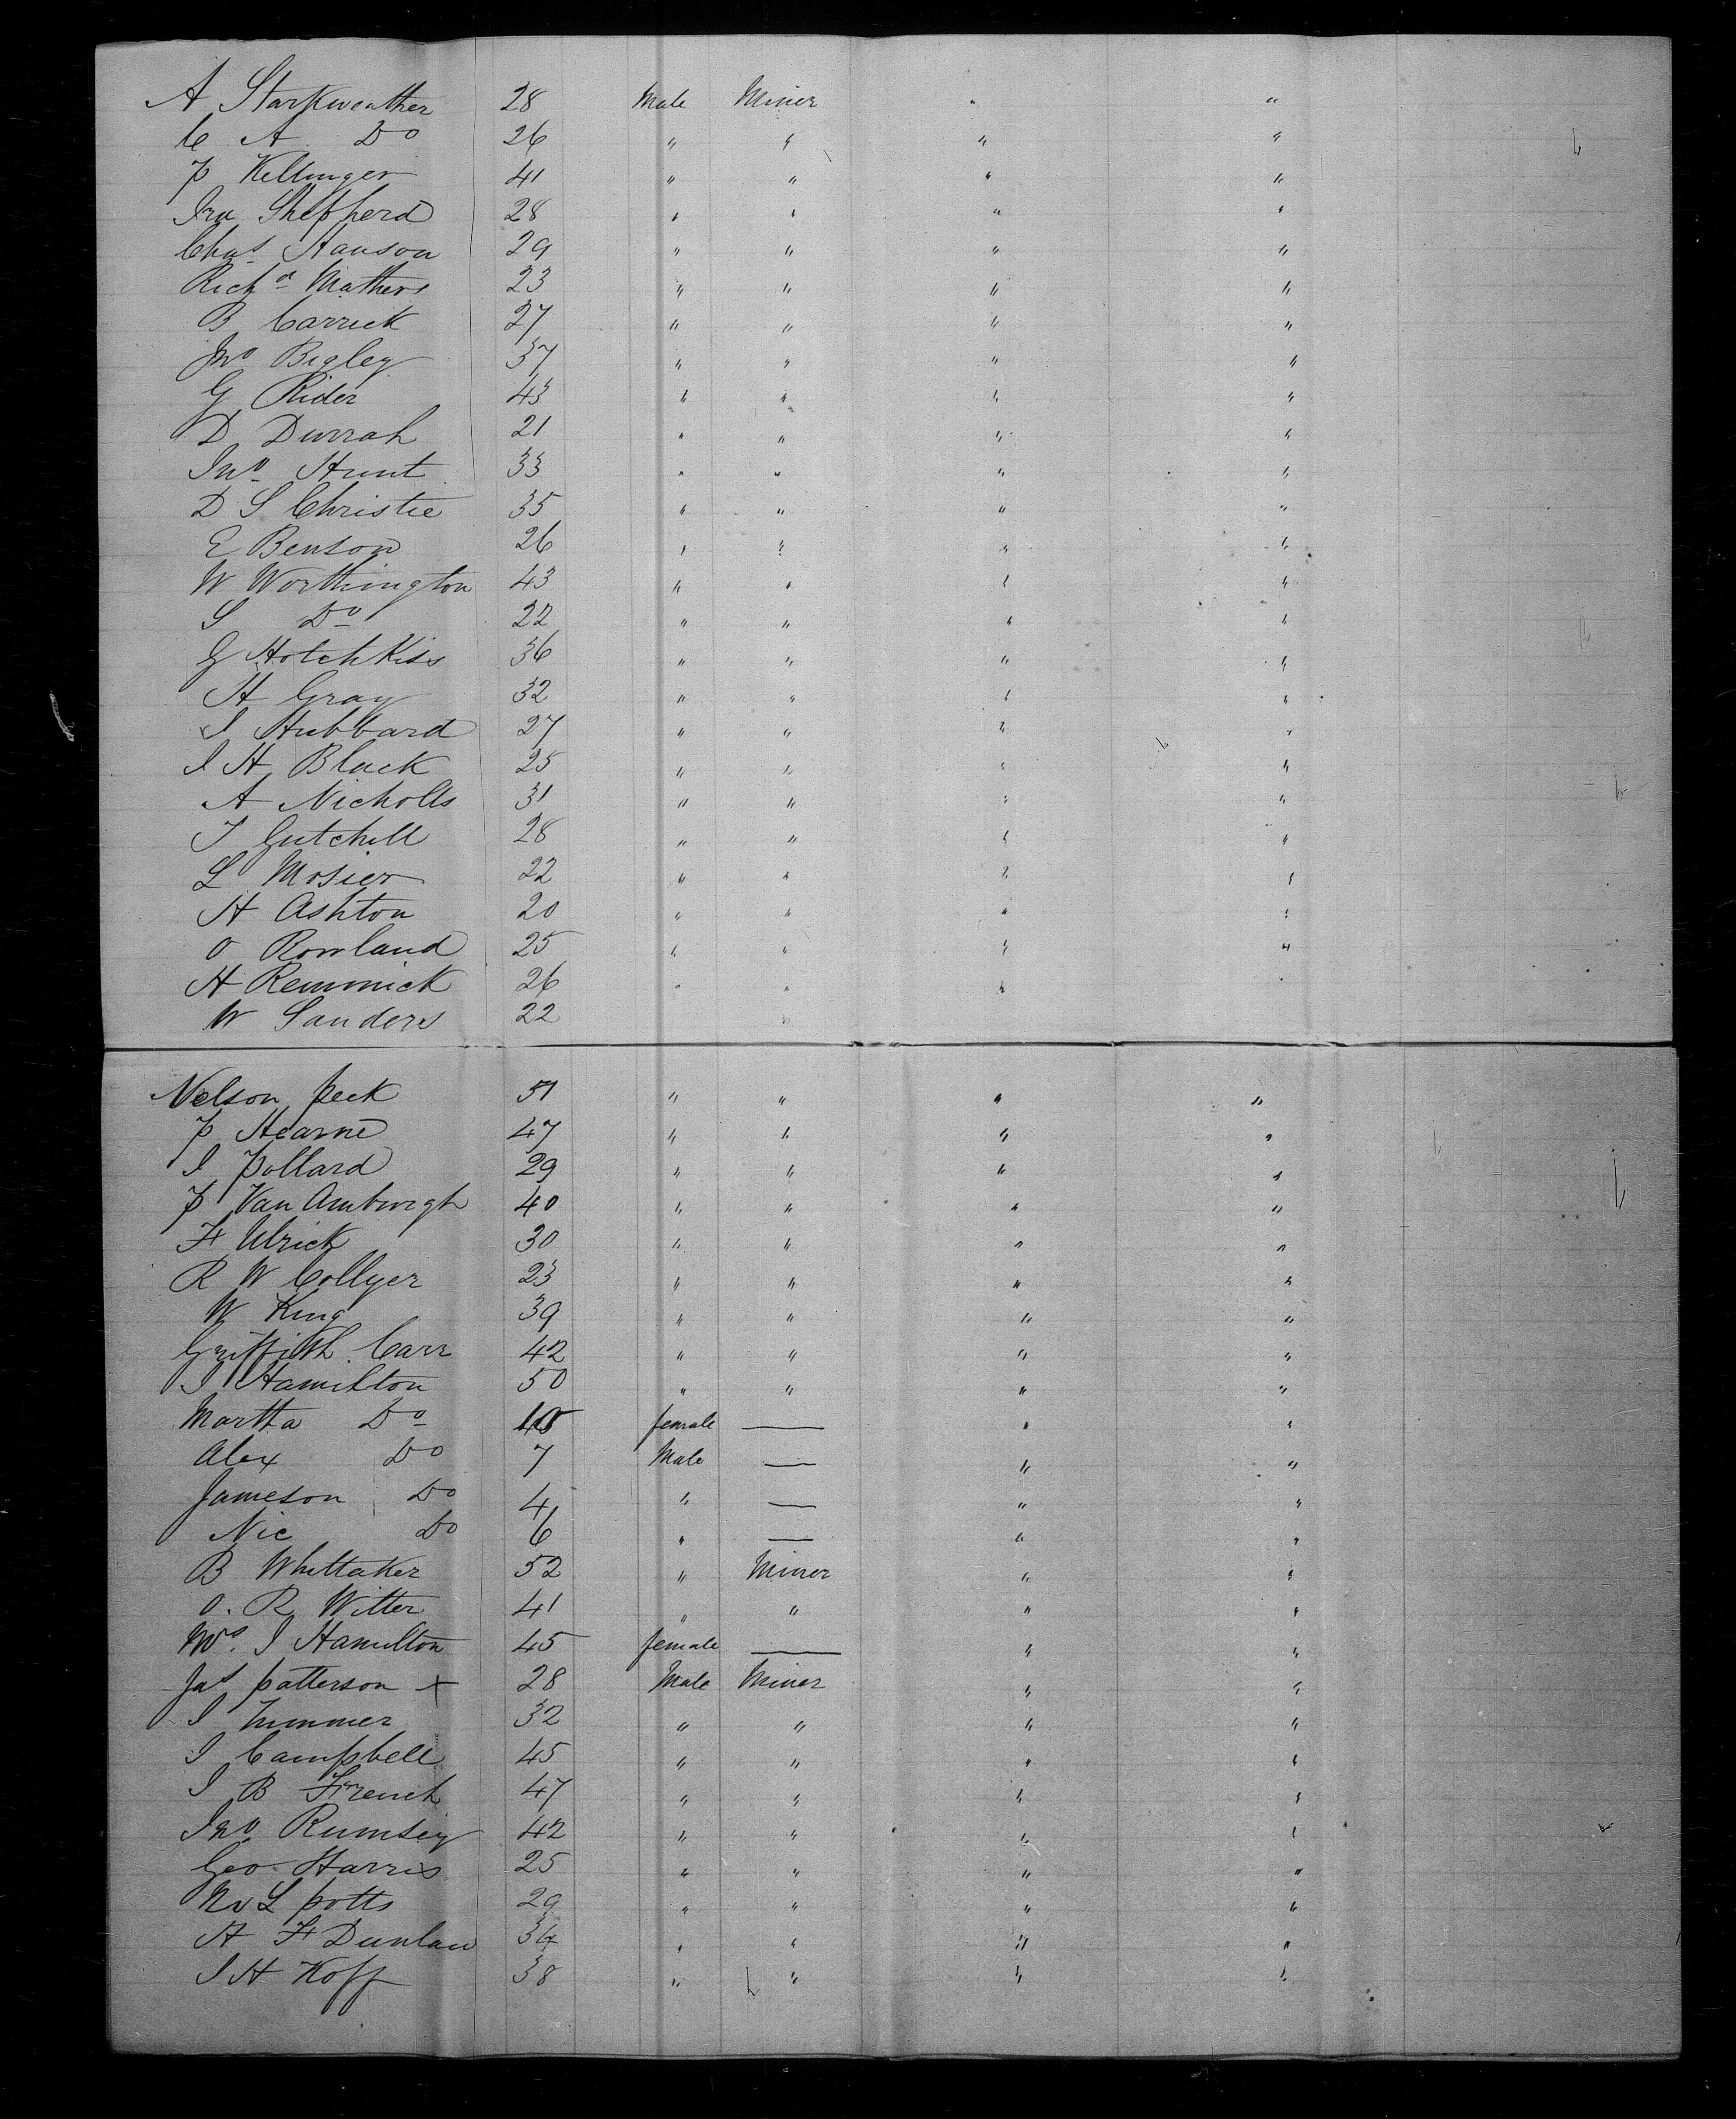 A Starkweather 28 Male Miner " "
C A Do 26 " " " "
P Kellinger 41 " " " "
Ira Shepherd 28 " " " "
Chas Hanson 29 " " " "
Richd Mathers 23 " " " "
B Carrick 27 " " " "
Jno Bigley 37 " " " "
G Rider 43 " " " "
D Durrah 21 " " " "
Jno Hunt 33 " " " "
D S Christie 35 " " " "
E Benson 26 " " " "
W Worthington 43 " " " "
S Do 22 " " " "
G Hotchkiss 36 " " " "
H Gray 32 " " " "
I Hubbard 27 " " " "
I H Black 25 " " " "
A Nicholls 31 " " " "
T Gutchill 28 " " " "
L Mosier 22 " " " "
H Ashton 20 " " " "
O Rowland 25 " " " "
H Remmick 26 " " "
W Sanders 22 "
Nelson Peck 51 " " " "
P Hearne 47 " " " "
I Pollard 29 " " " "
P Van Amburgh 40 " " " "
F Ulrick 30 " " " "
R W Collyer 23 " " " "
W King 39 " " " "
Griffith Carr 42 " " " "
I Hamilton 50 " " " "
Martha Do female — " "
Alex Do 7 Male — " "
Jameson Do 4 " — " "
Nic Do 6 " — " "
B Whittaker 52 " Miner " "
O. R Witter 41 " " " "
Mrs. I Hamilton 45 female — " "
Jas Patterson x 28 Male Miner " "
I 32 " " " "
I Campbell 45 " " " "
I B French 47 " " " "
Jno Rumsey 42 " " " "
Geo Harris 25 " " " "
L Potts 29 " " " "
A F Dunlau 34 " " " "
I H Koff 38 " " " "